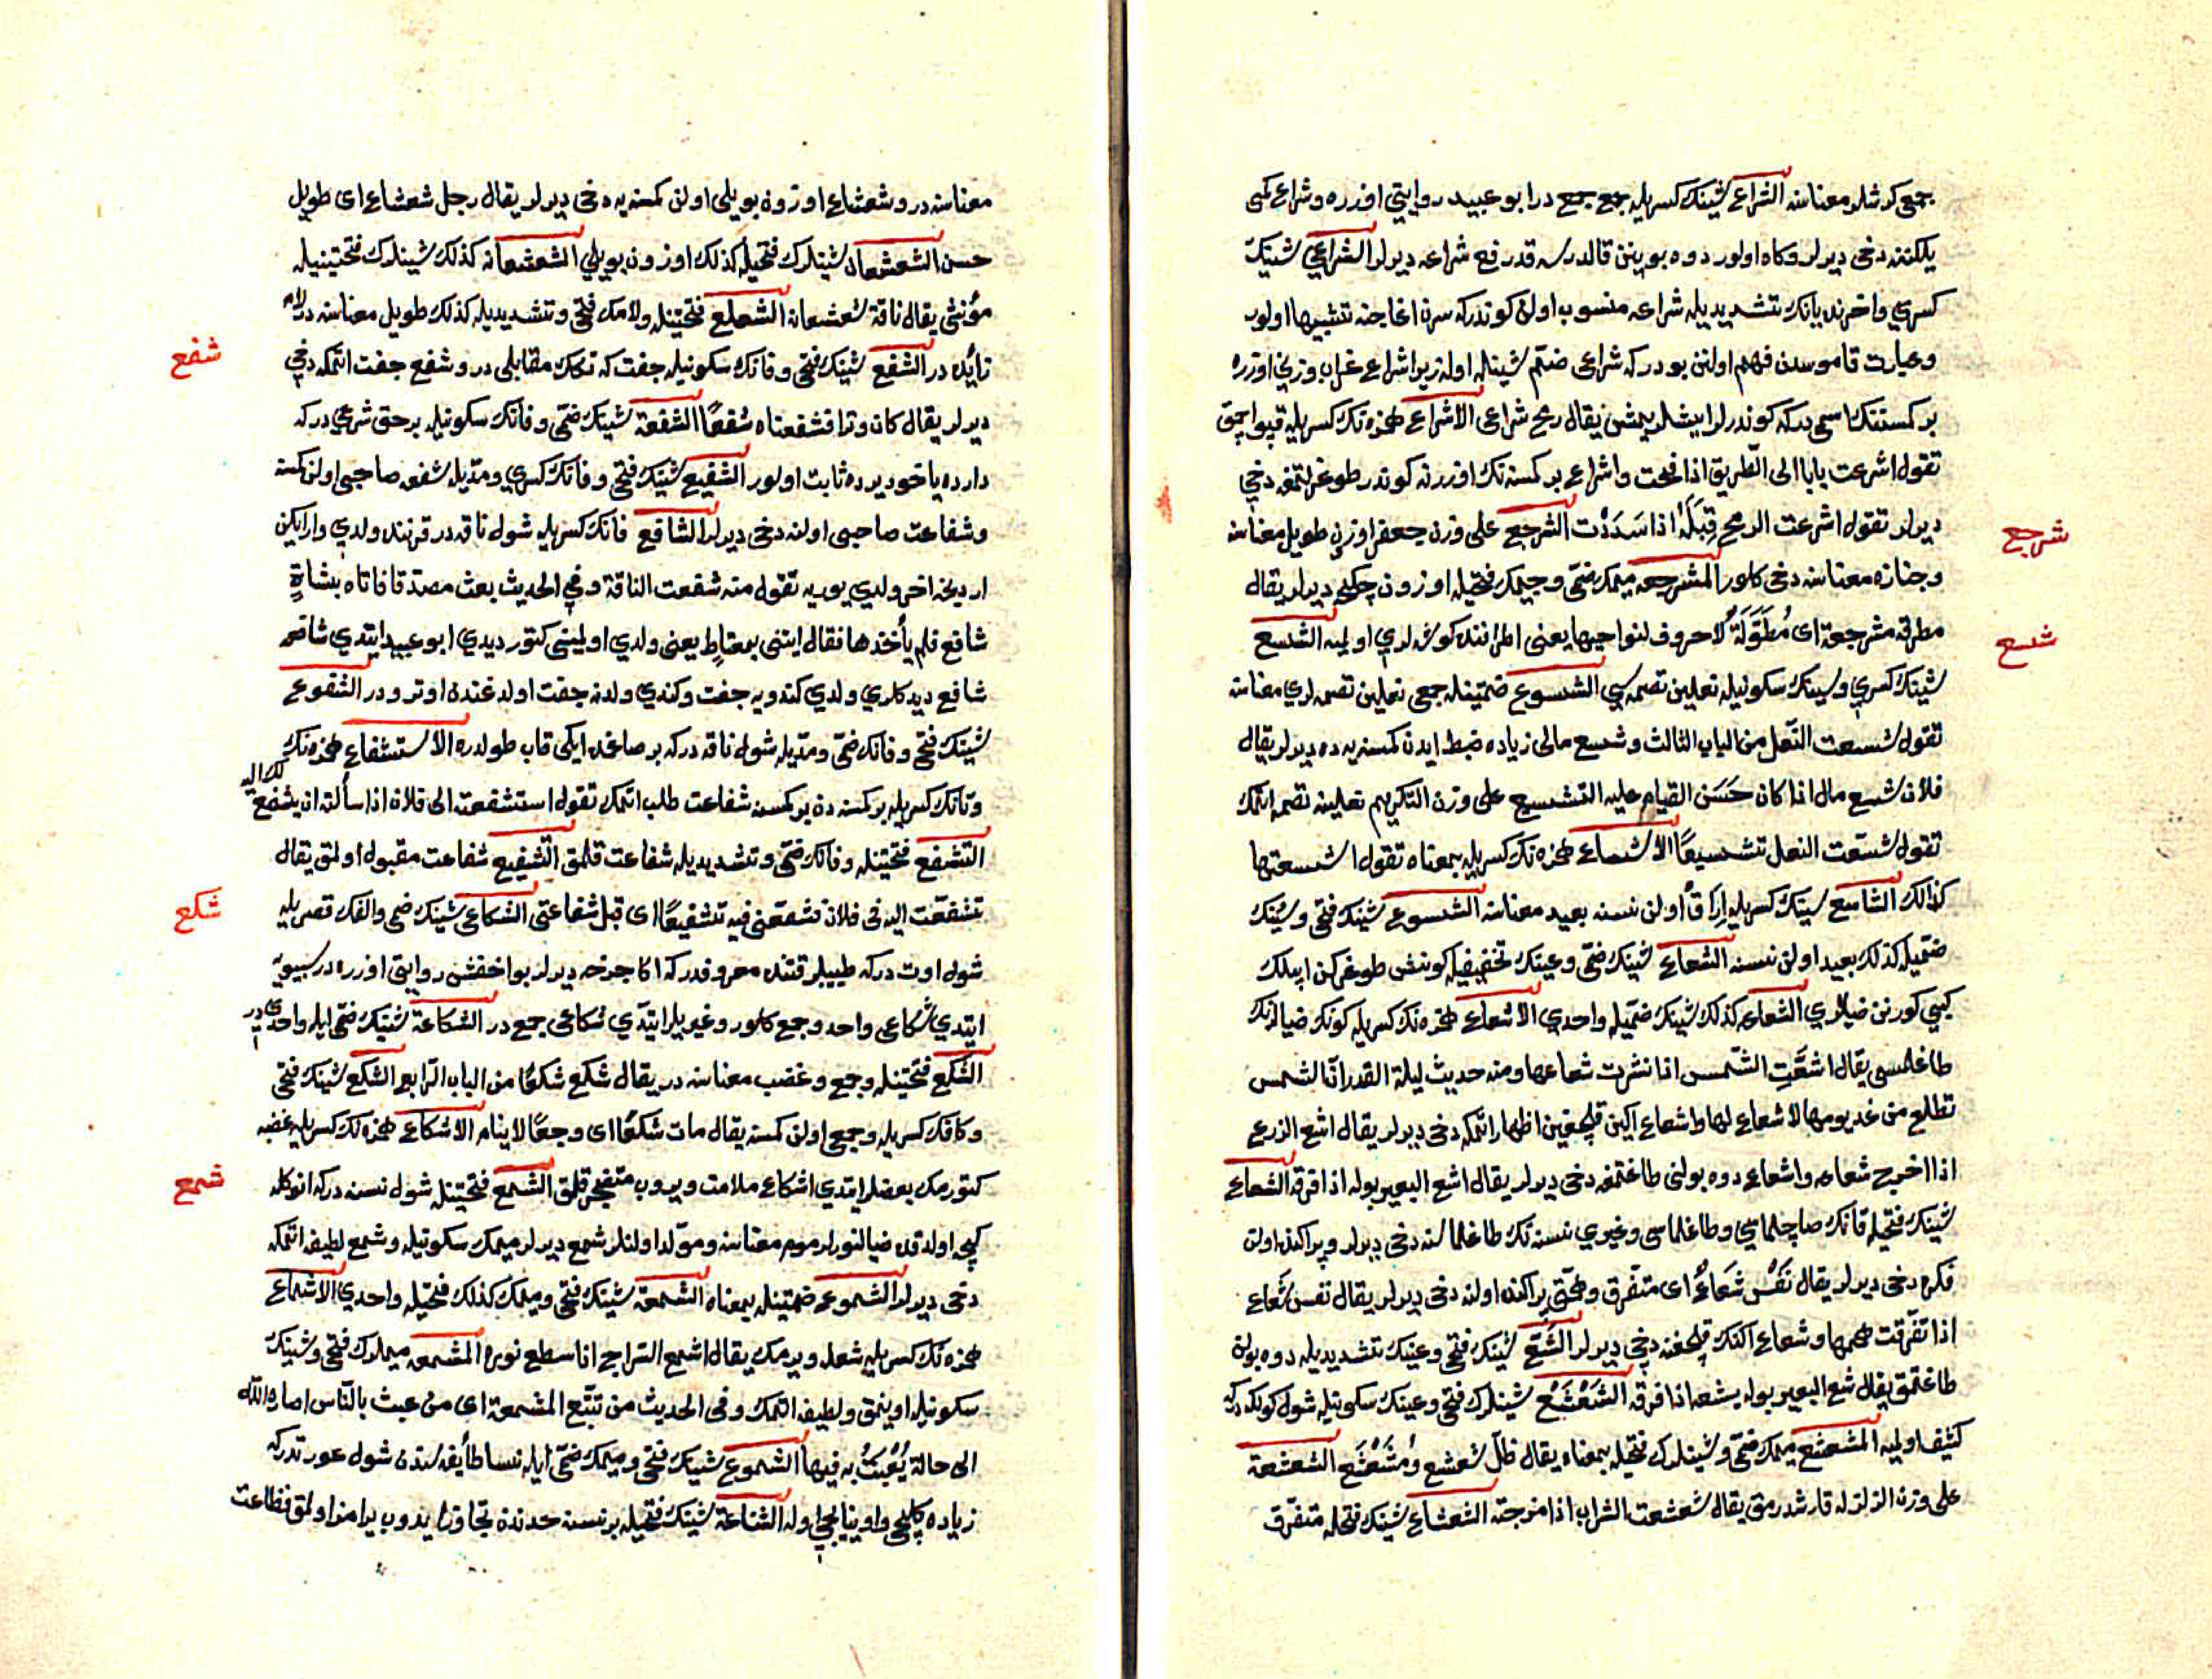 جمعی کرشلر معناسنه الشراع شینك کسریله جمع جمع در ابو عبید روایتی اوزره و شراع کمی
یلکننه دخی دیرلر وکاه اولور دوه بوینن قالدرسه قد رفع شراعه دیرلر الشراعی شینك
کسری و اخرنده یانك تشدیدیله شراعه منسوب اولان کوندرکه سرن اغاجنه تشبیها اولور
و عبارت قاموسدن فهم اولنن بودرکه شراعی ضم شینله اوله زیرا شراع غراب وزنی اوزره
بر کمسننك اسمی درکه کوندرلر ایشلر یمش یقال رمح شراعی الاشراع همزه نك کسریله قپو اچمق
تقول اشرعت بابا الی الطریق اذا فتحت و اشراع بر کمسنه نك اوزرنه کوندر طوغرلتمغه دخی
دیرلر تقول اشرعت الرمح قِبَلَهُ اذا سَدَدْت الشرجع علی وزن جعفر اوزن طویل معناسنه
شرجع
و جنازه معناسنه دخی کلور المشرجعه میمك ضمی و جیمك فتحیله اوزون چکجه دیرلر یقال
مطرقه مشرجعة ای مُطَوَّلَةٌ لا حروف لنواحیها یعنی اطرافنده کوشه لری اولمیه الشسع
شسع
شینك کسری و سینك سکونیله نعلین تصمه سی الشسوع ضمتینله جمعی نعلین تصمه لری معناسنه
تقول شسعت النعل من الباب الثالث و شسع مالی زیاده ضبط ایدن کمسنه یه ده دیرلر یقال
فلان شسع مال اذا کان حَسَن القیام علیه التشسیع علی وزن التکریم نعلینه تصمه اتمك
تقول شسّعت النعل تشسیعًا الاشساع همزه نك کسریله بمعناه تقول اشسعتها
کذالك الشاسع سینك کسریله ایراق اولن نسنه بعید معناسنه الشسوع شینك فتحی و سینك
ضمیله کذلك بعید اولن نسنه الشعاع شینك ضمی و عینك تخفیفیله کونش طوغرکن ایپلك
کیبی کورنن ضیالری الشعاعه کذلك شینك ضمیله واحدی الاشعاع همزه نك کسریله کونك ضیالرنك
طاغلمسی یقال اشعّتِ الشّمس اذا نشرت شعاعها ومنه حدیث لیلة القدر ان الشمس
تطلع من غد یومها لا شعاع لها و اشعاع اکین قلجغین اظهار اتمکه دخی دیرلر یقال اشع الزرع
اذا اخرج شعاعه و اشعاع دوه بولنی طاغتمغه دخی دیرلر یقال اشع البعیر بوله اذا فرقه الشعاع
شینك فتحیله قانك صاچلماسی و طاغلماسی و غیری نسنه نك طاغلماسنه دخی دیرلر و پراکنده اولن
فکره دخی دیرلر یقال نَفْسٌ شَعَاعٌ ای متفرق و همتی پراکنده اولنه دخی دیرلر یقال نفس شعاع
اذا تفرّقت هممها و شعاع اکنك قلجغنه دخی دیرلر الشّعّ شینك فتحی و عینك تشدیدیله دوه بولن
طاغتمق یقال شع البعیر بوله یشعه اذا فرقه الشَعْشَع شینلرك فتحی و عینك سکونیله شول کولکه درکه
کثیف اولمیه المشعشع میمك ضمی و شینلرك فتحیله بمعناه یقال ظلّ شعشع و مُشَعْشَع الشعشعة
علی وزن الزلزله قارشدرمق یقال شعشعت الشراب اذا مزجته الشعشاع شینك فتحله متفرق
معناسنه در و شعشاع اوزون بویلی اولن کمسنه یه دخی دیرلر یقال رجل شعشاع ای طویل
حسن الشعشعان شینلرك فتحیله کذلك اوزون بویلی الشعشعانه کذلك شینلرك فتحتینیله
مؤنثی یقال ناقة شعشعانه الشعلع فتحتینله ولامك فتحی و تشدیدیله کذلك طویل معناسنه در لام
زایده در الشفع شینك فتحی و فانك سکونیله جفت که تکك مقابلی در و شفع جفت اتمکه دخی
شفع
دیرلر یقال کان وترا فشفعناه شفعًا الشفعة شینك ضمی و فانك سکونیله بر حق شرعی درکه
دارده یاخود یرده ثابت اولور الشفیع شینك فتحی و فانك کسری و مدیله شفعه صاحبی اولن کمسنه
و شفاعت صاحبی اولنه دخی دیرلر الشافع فانك کسریله شول ناقه در قرننده ولدی وار ایکن
اردیجه اخر ولدی یوریه تقول منه شفعت الناقة وفی الحدیث بعث مصدقا فاتاه بشاةٍ
شافع فلم یأخذها فقال ایتنی بمعتاطٍ یعنی ولدی اولمینی کتور دیدی ابو عبید ایتدی شافعه
شافع دیدکلری ولدی کندویه جفت و کندی ولدنه جفت اولدغندن اوتر ودر الشفوع
شینك فتحی و فانك ضمی و مدیله شول ناقه درکه بر صاغمده ایکی قاب طولدره الاستشفاع همزه نك
و تانك کسریله بر کمسنه دن بر کمسنه شفاعت طلب اتمك تقول استشفعته الی فلان اذا سألته ان یشفع لك الیه
التشفع فتحتینله و فانك ضمی و تشدیدیله شفاعت قلمق التشفیع شفاعت مقبول اولمق یقال
تشفعّت الیه فی فلان فشفعّنی فیه تشفیعًا ای قبل شفاعتی الشکاعی شینك ضمی والفك قصریله
شکع
شول اوت درکه طبیبلر قتنده معروفدرکه اکا چرخه دیرلر بو اخفش روایتی اوزره در سیبویه
ایتدی شکاعی واحد و جمع کلور و غیریلر ایتدی شکاعی جمع در الشکاعة شینك ضمی ایله واحدی در
الشکع فتحتینله وجع و غضب معناسنه در یقال شکع شکعًا من الباب الرابع الشکع شینك فتحی
و کافك کسریله وجعی اولن کمسنه یقال مات شکعًا ای وجعًا لا ینام الاشکاع همزه نك کسریله غضبه
کتورمك بعضلر ایتدی اشکاع ملامت ویروب متضجر قلمق الشمع فتحتینله شول نسنه درکه انوکله
شمع
کیجه اولدقده ضیالنورلر موم معناسنه و مولد اولنلر شمع دیرلر میمك سکونیله و شمع لطیفه اتمکه
دخی دیرلر الشموع ضمتینله بمعناه الشمعة شینك فتحی و میمك کذلك فتحیله واحدی الاشماع
همزه نك کسریله شعله ویرمك یقال اشمع السّراج اذا سطع نوره المشمعه میملرك فتحی و شینك
سکونیله اوینمق و لطیفه اتمك وفی الحدیث من تتبّع المشمعة ای من عبث بالنّاس اصاره الله
الی حالة یُعْبَثُ به فیها الشموع شینك فتحی و میمك ضمّی ایله نسا طایفه سندن شول عورتدرکه
زیاده کلیجی و اوینایجی اوله الشناعة شینك فتحیله بر نسنه حدندن تجاوز ایدوب یرامز اولمق فظاعت